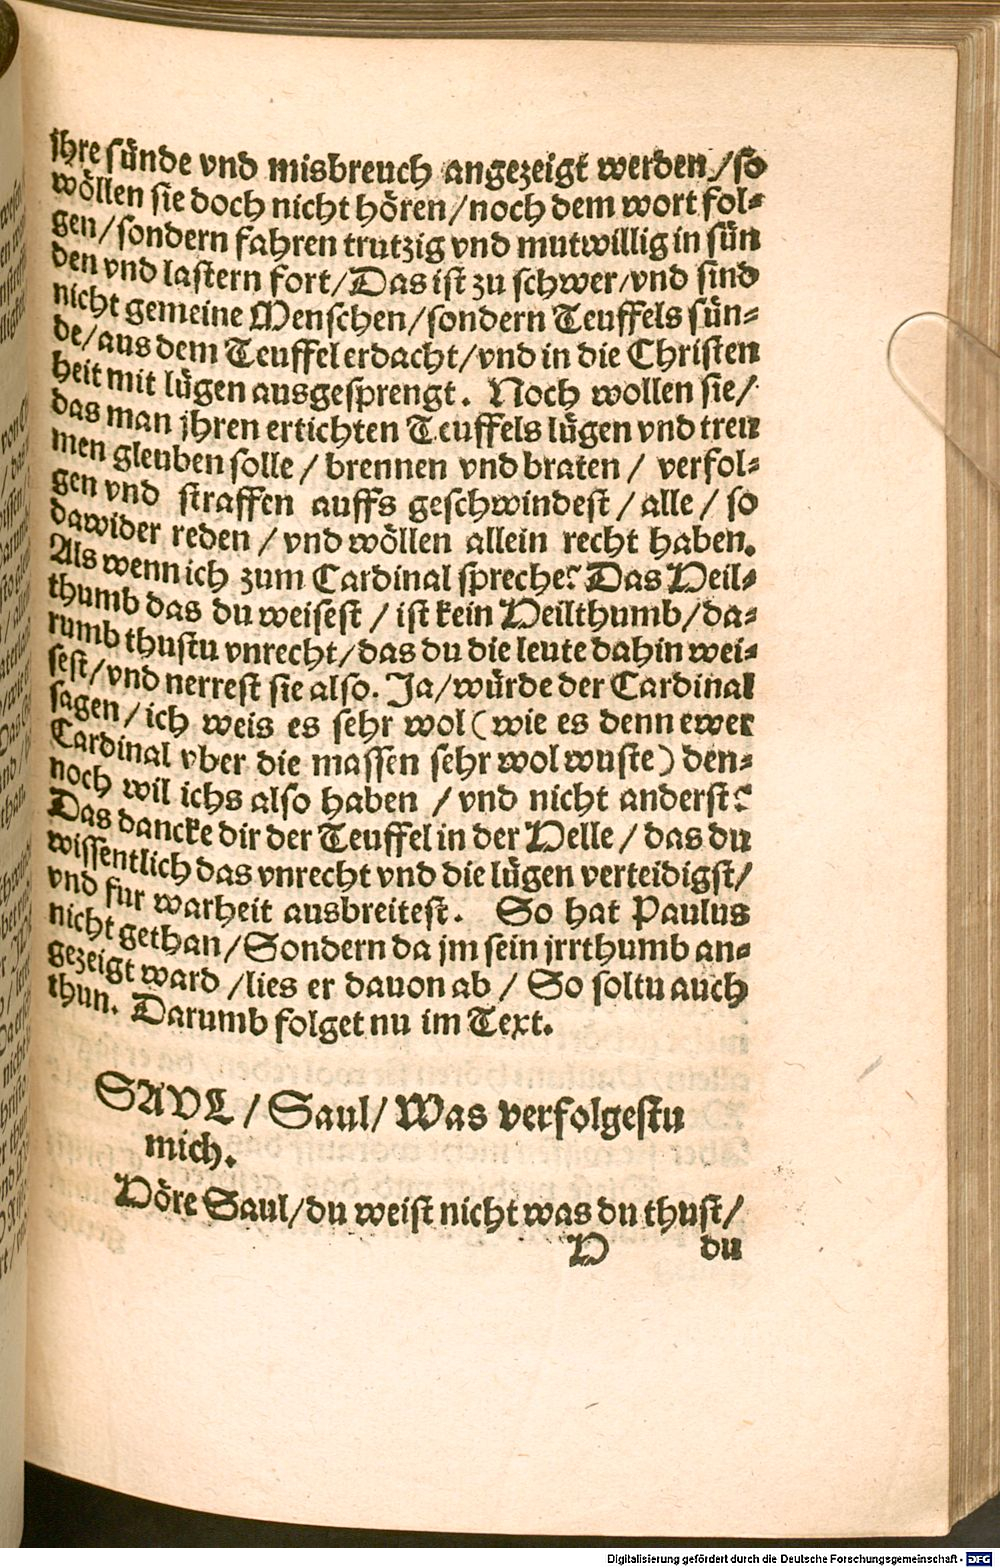 jhre sünde vnd misbreuch angezeigt werden / so
wöllen sie doch nicht hören / noch dem wort fol⸗
gen / sondern fahren trutzig vnd mutwillig in sün
den vnd lastern fort / Das ist zu schwer / vnd sind
nicht gemeine Menschen / sondern Teuffels sün⸗
de / aus dem Teuffel erdacht / vnd in die Christen
heit mit lügen ausgesprengt. Noch wollen sie /
das man jhren ertichten Teuffels lügen vnd treu
men gleuben solle / brennen vnd braten / verfol⸗
gen vnd straffen auffs geschwindest / alle / so
dawider reden / vnd wöllen allein recht haben.
Als wenn ich zum Cardinal spreche? Das Heil⸗
thumb das du weisest / ist kein Heilthumb / da⸗
rumb thustu vnrecht / das du die leute dahin wei⸗
sest / vnd nerrest sie also. Ja / würde der Cardinal
sagen / ich weis es sehr wol (wie es denn ewer
Cardinal vber die massen sehr wol wuste) den⸗
noch wil ichs also haben / vnd nicht anderst?
Das dancke dir der Teuffel in der Helle / das du
wissentlich das vnrecht vnd die lügen verteidigst /
vnd fur warheit ausbreitest. So hat Paulus
nicht gethan / Sondern da jm sein jrrthumb an⸗
gezeigt ward / lies er dauon ab / So soltu auch
thun. Darumb folget nu im Text.
SAVL / Saul / Was verfolgestu
mich.
Höre Saul / du weist nicht was du thust /
H du
Digitalisierung gefördert durch die Deutsche Forschungsgemeinschaft - DFG